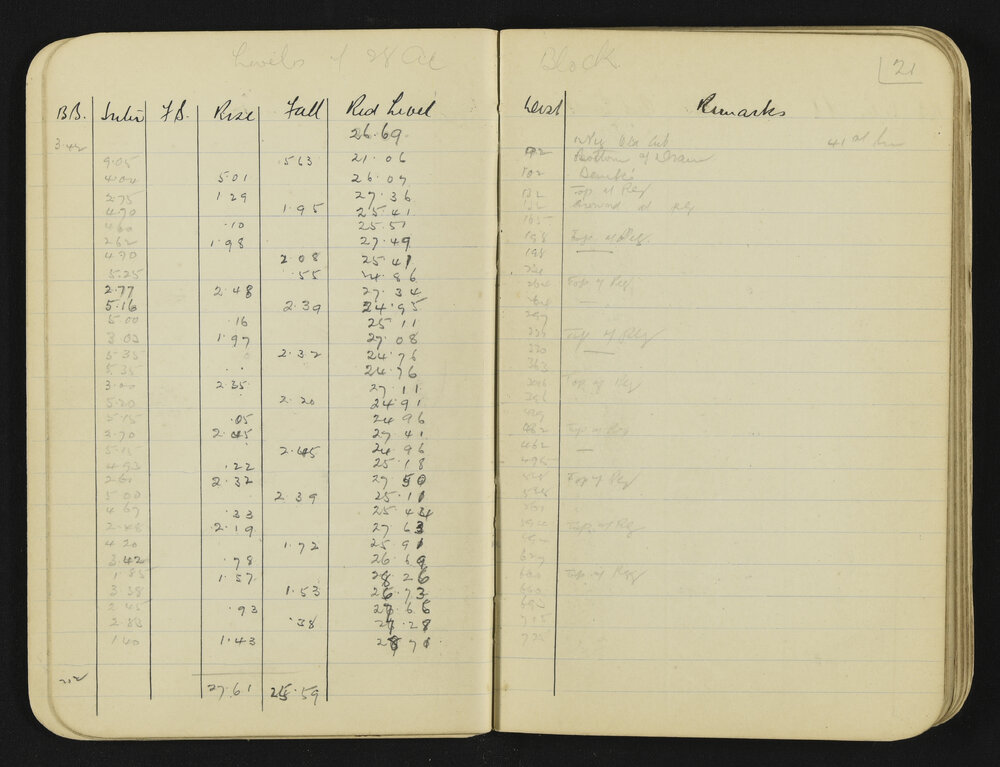 Levels of 28 Ac Block 21
B.S. Inter F.S. Rise Fall Red Level Dist Remarks
3.42 26.69
9.05 .563 21.06 Bottom of Drain
4.04 5.01 26.07 102
2.75 1.29 27.36 132 Top of Peg
4.70 1.95 25.41 132 Ground at peg
4.60 .10 25.51 165
2.62 1.98 27.49 198 Top of Peg
4.70 2.08 25.41 198 —
5.25 .55 24.86
2.77 2.48 27.34 264 Top of Peg
5.16 2.39 24.95 264 —
5.00 .16 25.11 297
3.03 1.97 27.08 330 Top of Peg
5.35 2.32 24.76 330 —
5.35 .. 24.76 363
3.00 2.35 27.11 396 Top of Peg
5.20 2.20 24.91 396
5.15 .05 24.96 429
3.70 2.45 27.41 462 Top of Peg
5.15 2.45 24.96 462 —
4.93 .22 25.18 495
2.60 2.32 27.50 528 Top of Peg
5.00 2.39 25.11 528
4.67 .33 25.44 561
2.48 2.19 27.63 594 Top of Peg
4.20 1.72 25.91
3.42 .78 26.69 627
1.85 1.57 28.26 660 Top of Peg
3.38 1.53 26.73 660
2.45 .93 27.66 693
2.83 .38 27.28 725
1.40 1.43 28.71 725
2.02 27.61 25.59